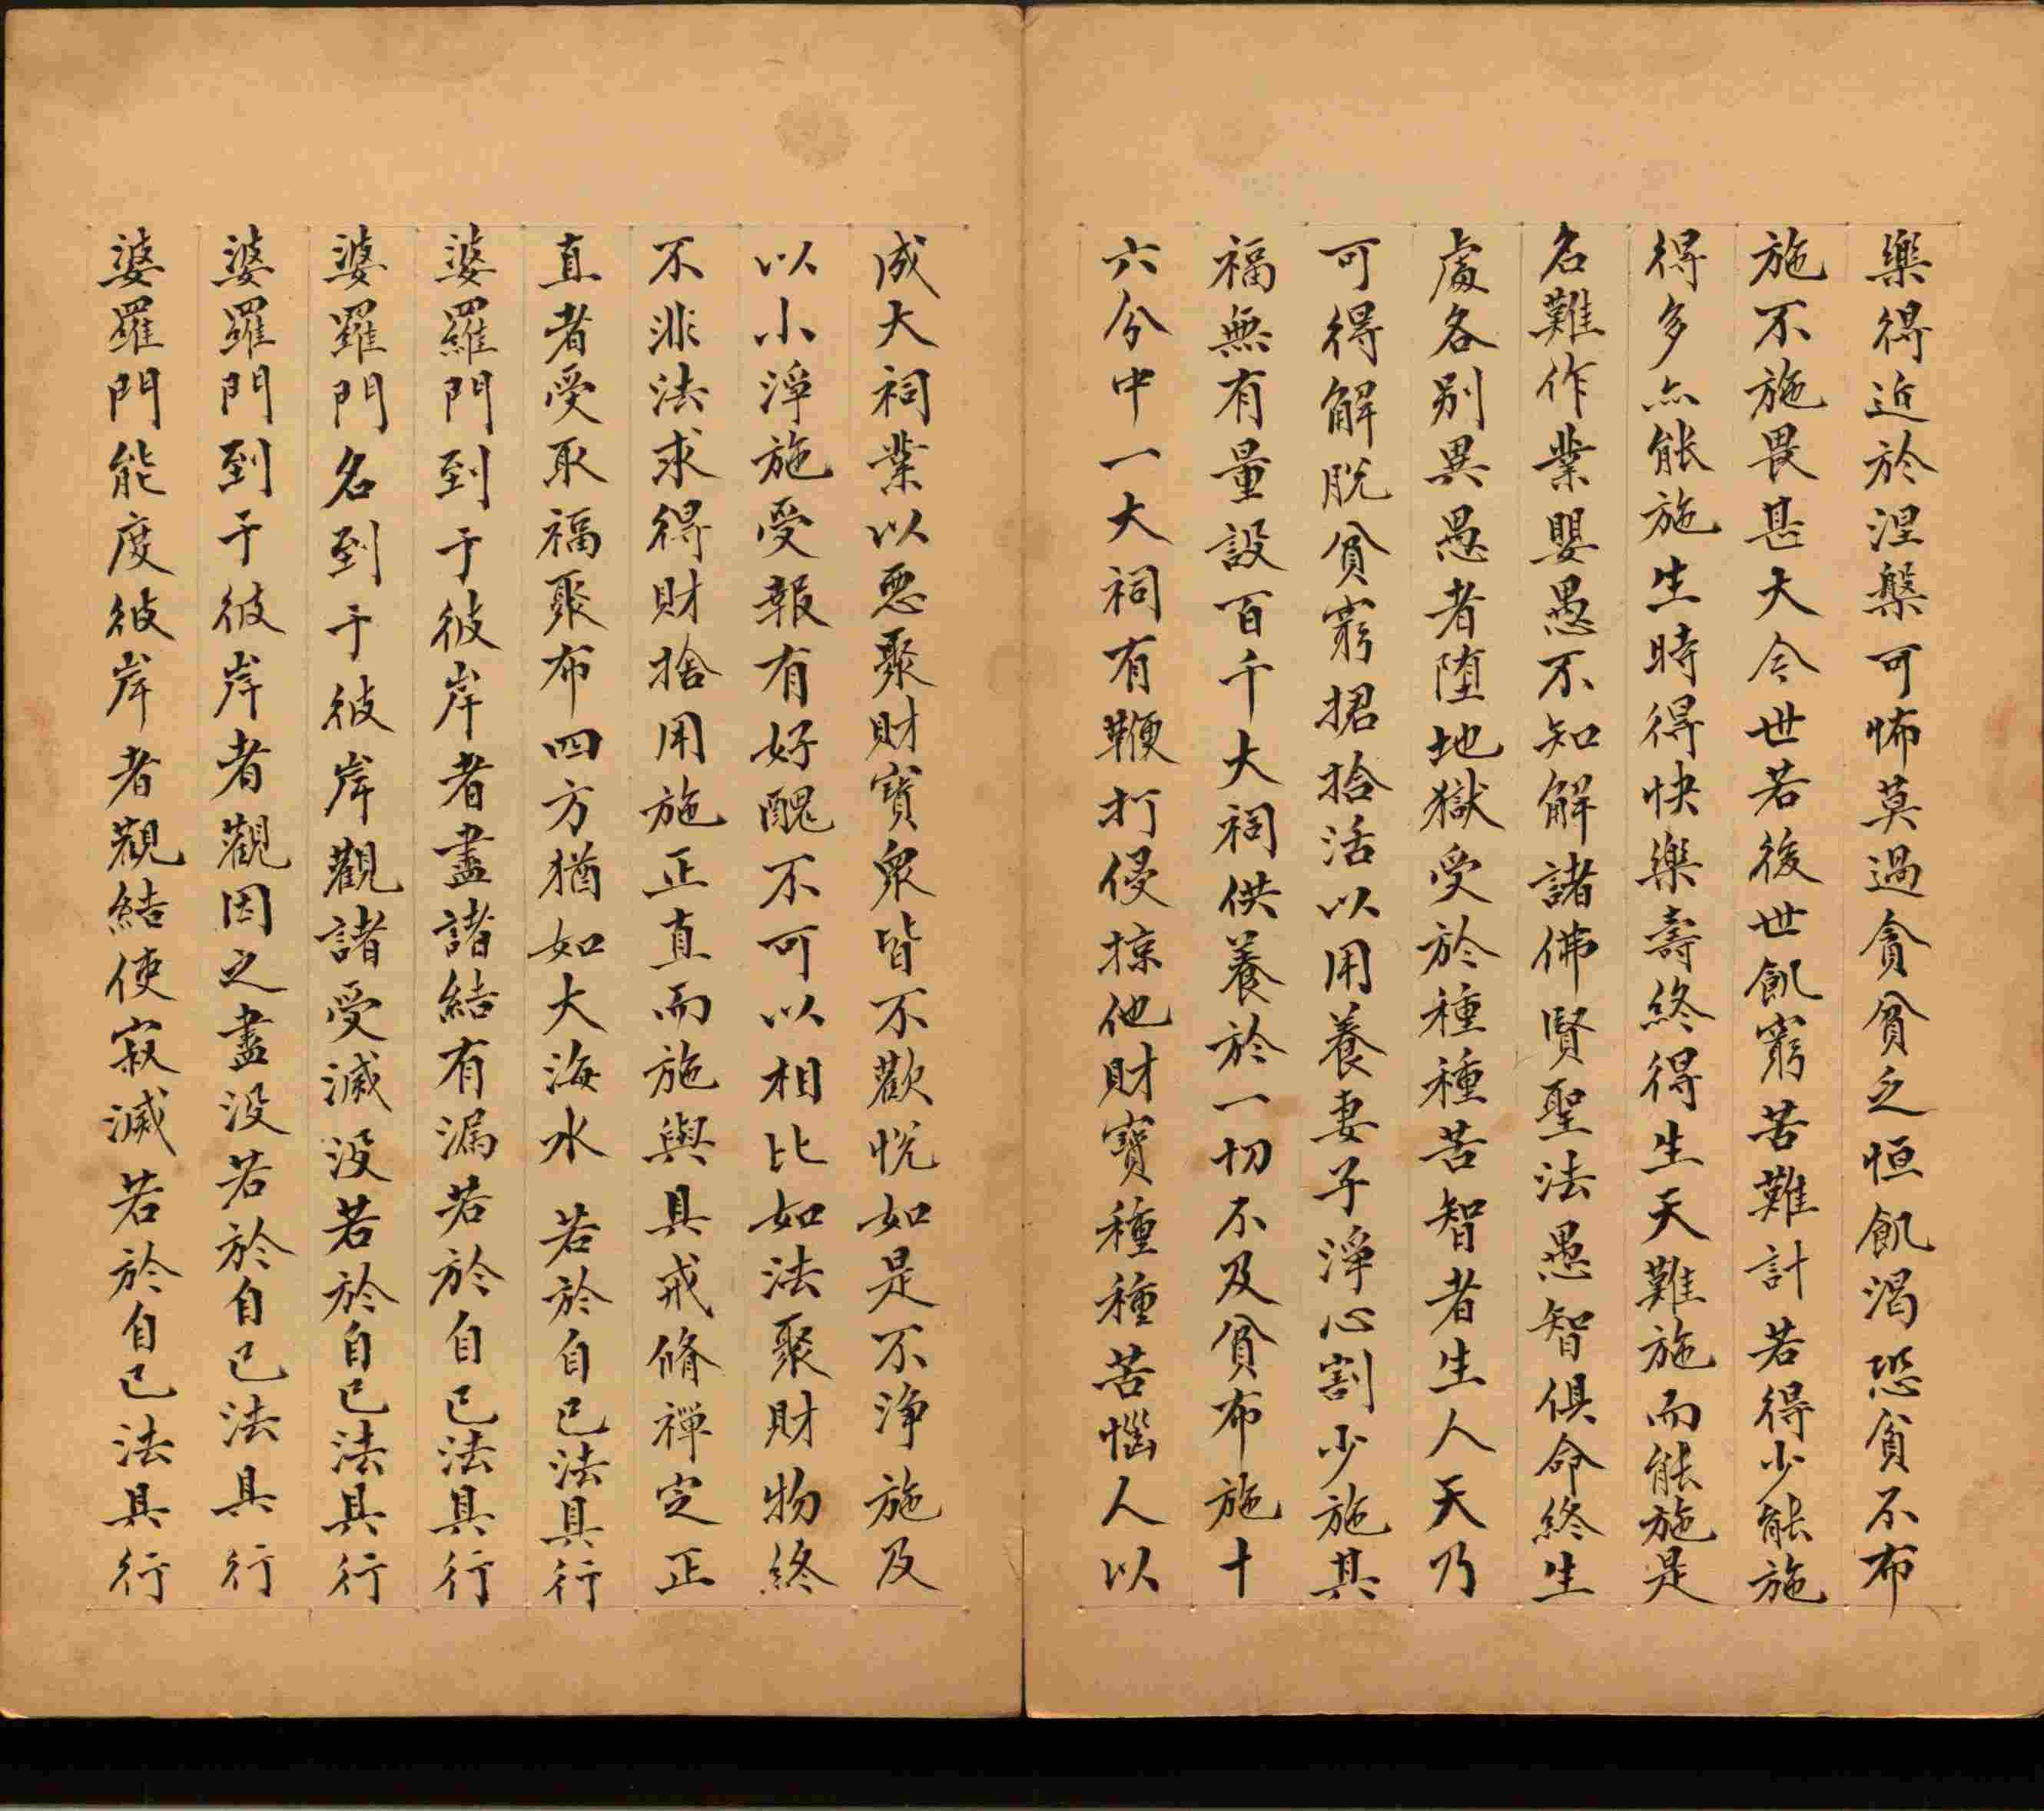 樂得近於涅槃可怖莫過貪貧之恒飢渴恐貧不布
施不施畏甚大今世若後世飢窮苦難計若得少能施
得多亦能施生時得快樂壽終得生天難施而能施是
名難作業嬰愚不知解諸佛賢聖法愚智俱命終生
處各別異愚者堕地獄受於種種苦智者生人天乃
可得解脫貧窮捃拾活以用養妻子淨心割少施其
福無有量設百千大祠供養於一切不及貧布施十
六分中一大祠有鞭打侵掠他財寶種種苦惱人以
成大祠業以惡聚財寶衆皆不歡悅如是不淨施及
以小淨施受報有好醜不可以相比如法聚財物終
不非法求得財捨用施正直而施與具戒脩禪定正
直者受取福聚布四方猶如大海水 若於自己法具行
婆羅門到于彼岸者盡諸結有漏若於自己法具行
婆羅門名到于彼岸觀諸受滅没若於自己法具行
婆羅門到于彼岸者觀因之盡没若於自己法具行
婆羅門能度彼岸者觀結使寂滅若於自己法具行